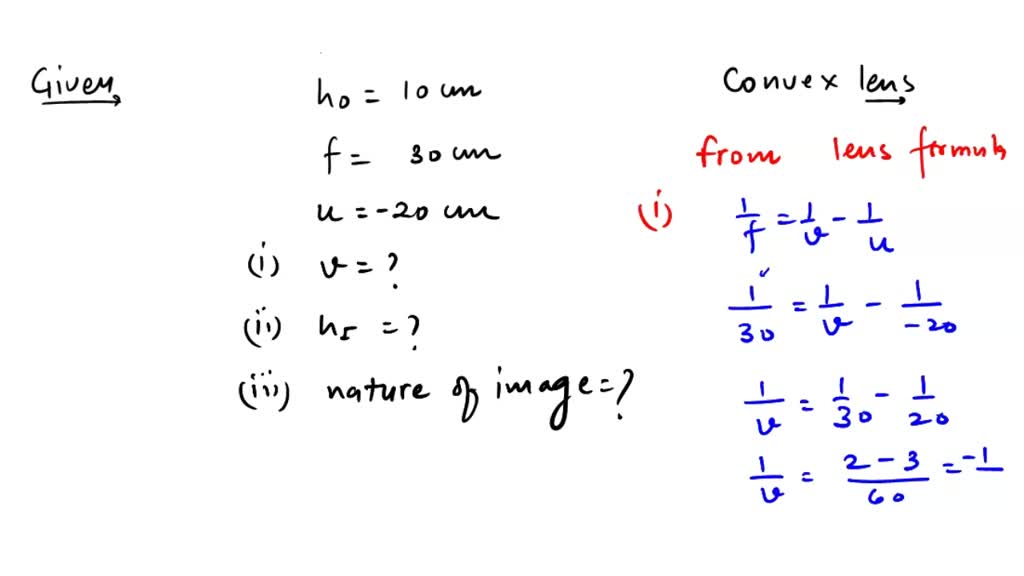 Given
h₀ = 10 cm
f = 30 cm
u = -20 cm
(i) v = ?
(ii) h_I = ?
(iii) nature of image = ?
Convex lens
from lens formula
(i) 1/f = 1/v - 1/u
1/30 = 1/v - 1/-20
1/v = 1/30 - 1/20
1/v = 2-3/60 = -1/